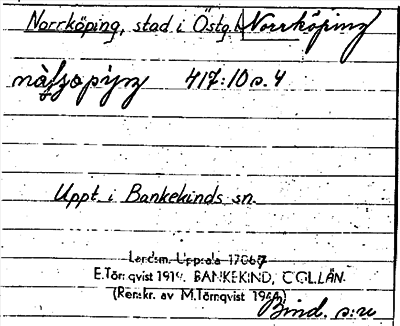 Norrköping, stad i Östg.l. Norrköping
417:10 s. 4
Uppt. i Bankekinds sn.
Landsm. Uppsala 17067
E. Törnqvist 1914. BANKEKIND, ÖGL. LÄN.
(Renskr. av M. Törnqvist 1944)
Bind. s:n